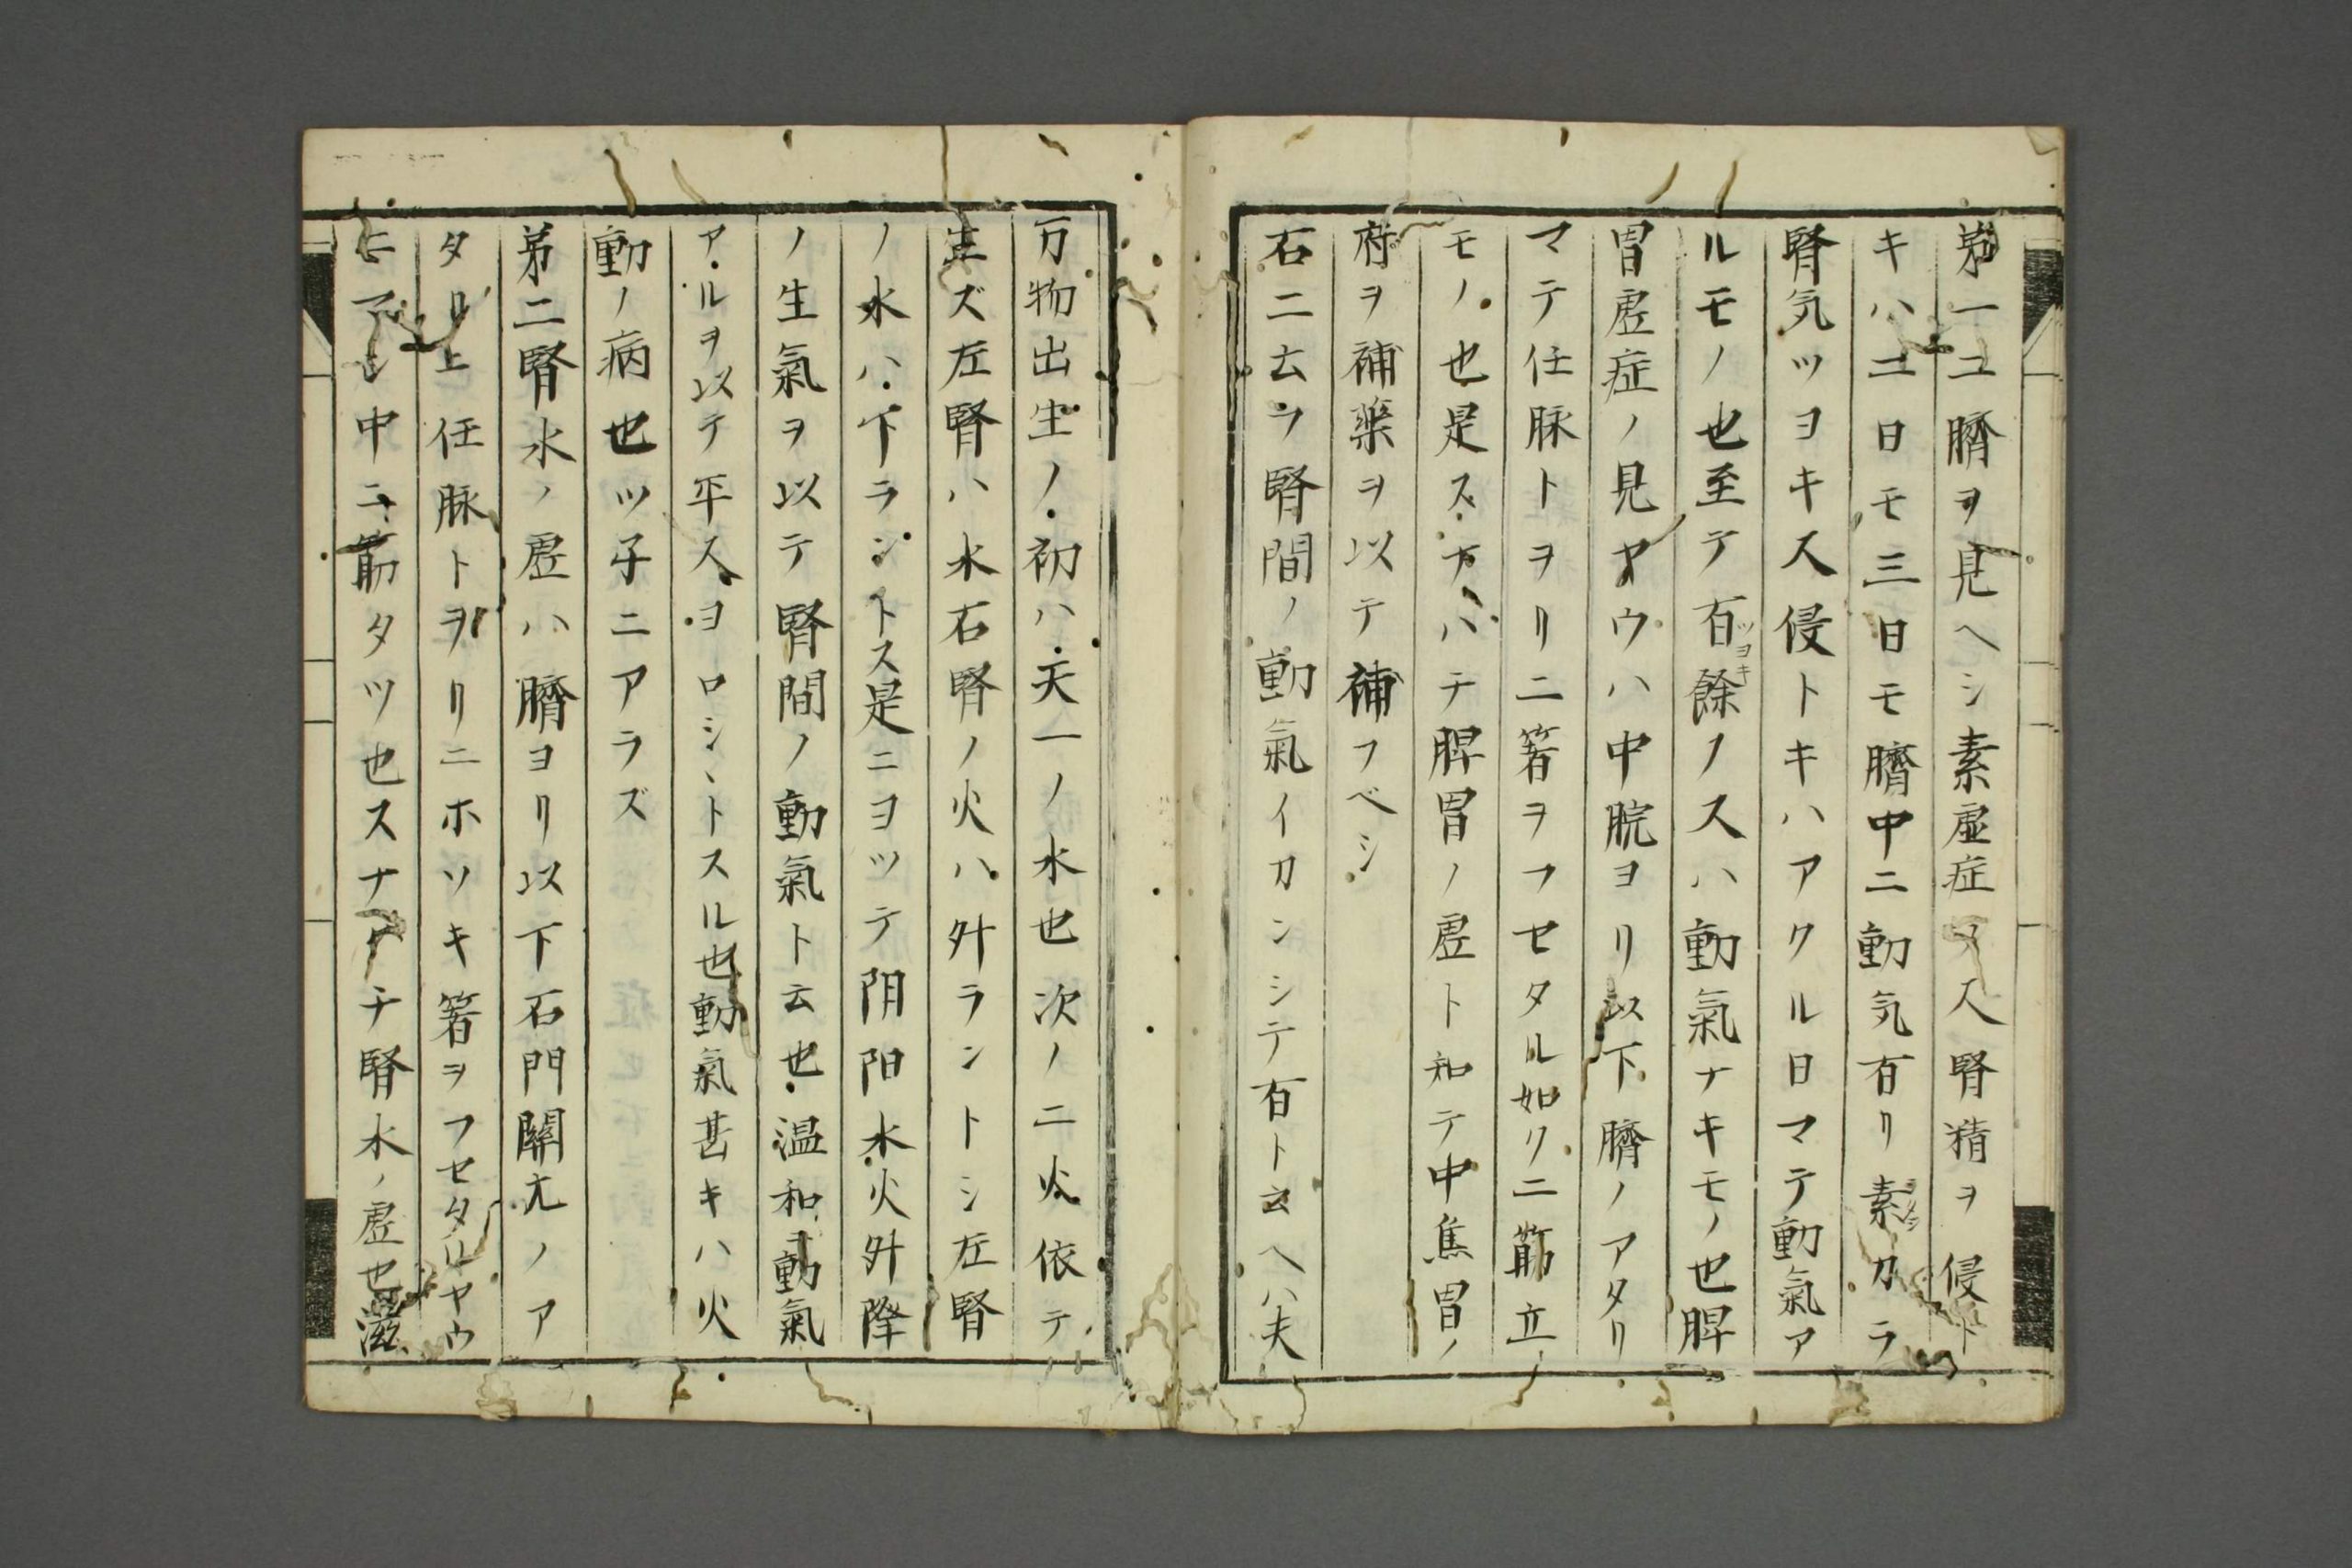 第一ニ臍ヲ見ヘシ素虚症ノ人腎精ヲ侵ト
キハ二日モ三日モ臍中ニ動気有リ素カラ
腎気ツヨキ人侵トキハアクル日マテ動氣ア
ルモノ也至テ有餘ノ人ハ動氣ナキモノ也脾
ツヨキ
胃虚症ノ見ヤウハ中脘ヨリ以下臍ノアタリ
マテ任脉トヲリニ箸ヲフセタル如クニ筋立
モノ也是スナハチ脾胃ノ虚ト知テ中焦胃ノ
府ヲ補薬ヲ以テ補フベシ
右ニ云ヲ腎間ノ動氣イカンシテ有ト云ヘハ夫
万物出生ノ初ハ天一ノ水也次ノ二火依テ
生ズ左腎ハ水右腎ノ火ハ外ラントシ左腎
ノ水ハ下ラントス是ニヨツテ阴阳水火外降
ノ生氣ヲ以テ腎間ノ動氣ト云也温和ニ動氣
アルヲ以テ平人ヨロシヽトスル也動氣甚キハ火
動ノ病也ツ子ニアラズ
第二腎水ノ虚ハ臍ヨリ以下石門關元ノア
タリ上任脉トヲリニホソキ箸ヲフセタルヤウ
ニアシ中ニ筋タツ也スナハチ腎水ノ虚也滋